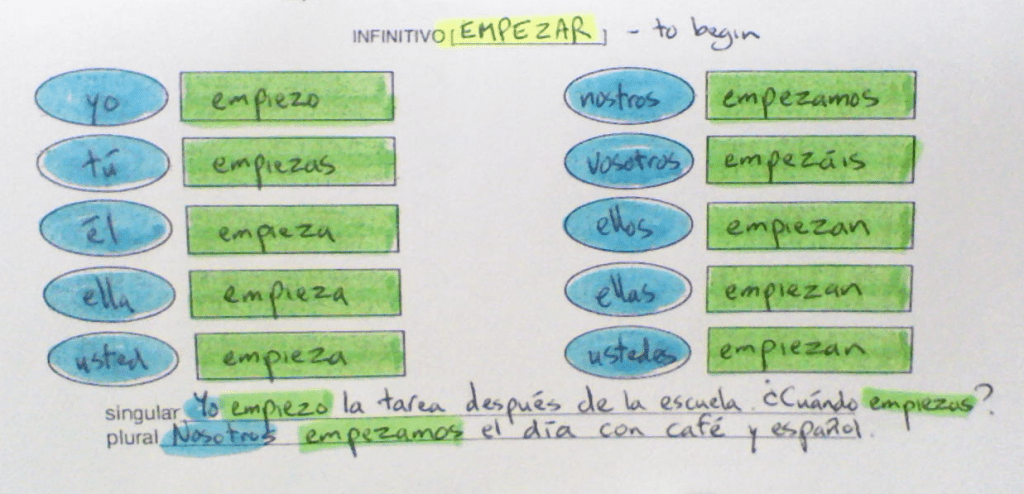 INFINITIVO [EMPEZAR] - to begin
yo empiezo nostros empezamos
tú empiezas vosotros empezáis
él empieza ellos empiezan
ella empieza ellas empiezan
usted empieza ustedes empiezan
singular Yo empiezo la tarea después de la escuela. ¿Cuándo empiezas?
plural Nosotros empezamos el día con café y español.